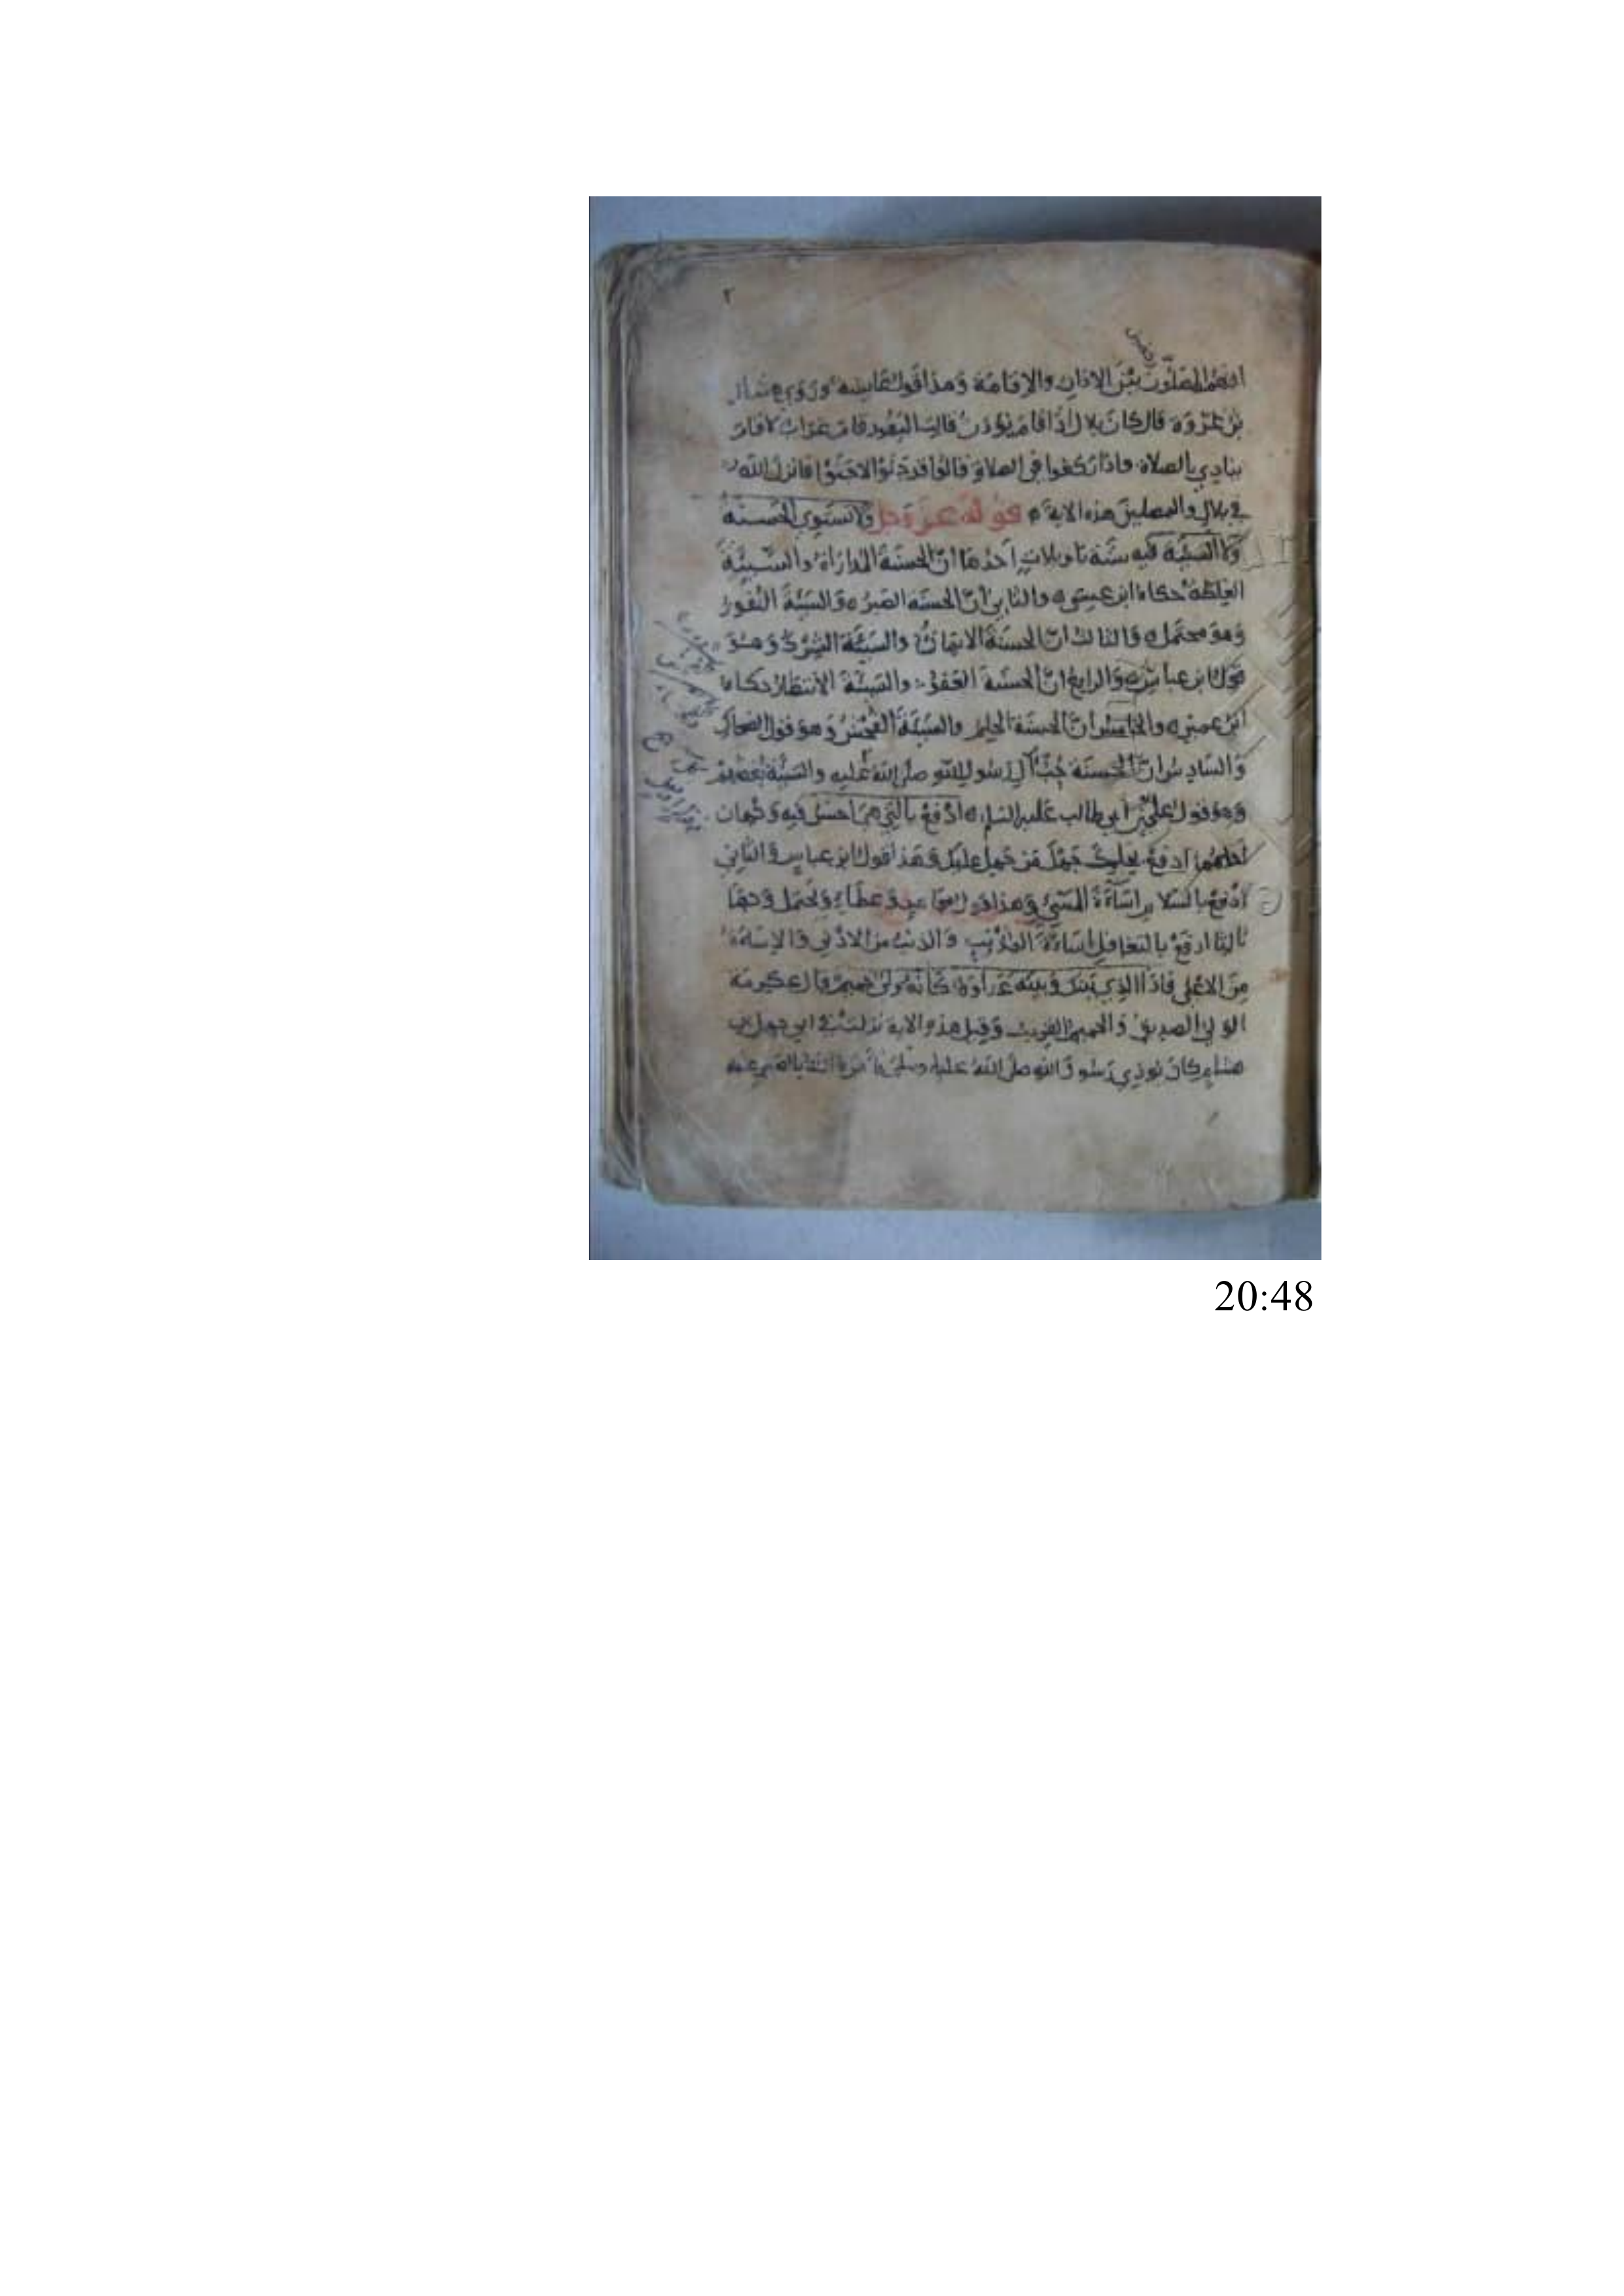 ٢
انهم المصلون بين الاذان والاقامة وهذا قول عايشه وروي هشام
بن عروة قال كان بلال اذا قام يؤذن قالت اليهود قام غراب لا قام
ينادي بالصلاة فاذا ركعوا في الصلاة قالوا قد جثوا لا جثوا فانزل الله
في بلال والمصلين هذه الاية قوله عز وجل ولا تستوي الحسنة
ولا السيئة فيه ستة تاويلات احدها ان الحسنة المداراة والسيئة
الغلظة حكاه ابن عيسى والثاني ان الحسنه الصبر والسيئة النفور
وهو محتمل والثالث ان الحسنة الايمان والسيئة الشرك وهو
قول ابن عباس والرابع ان الحسنة العفو والسيئة الانتظار حكاه
ابن عمير والخامس ان الحسنة الحلم والسيئة الفحش وهو قول الضحاك
والسادس ان الحسنة حب آل رسول الله صلى الله عليه والسيئة بغضهم
وهو قول علي بن ابي طالب عليه السلم ادفع بالتي هي احسن فيه وجهان
احدهما ادفع بحلمك جهل من جهل عليك وهذا قول ابن عباس والثاني
ادفع بالسلام اساءة المسيء وهذا قول مجاهد وعطاء ويحتمل وجها
ثالثا ادفع بالتغافل اساءة المذنب والذنب من الادنى والاساءة
من الاعلى فاذا الذي بينك وبينه عداوة كانه ولي حميم قال عكرمة
الولي الصديق والحميم القريب وقيل هذه الاية نزلت في ابي جهل بن
هشام كان يوذي رسول الله صلى الله عليه وسلم عنه
20:48